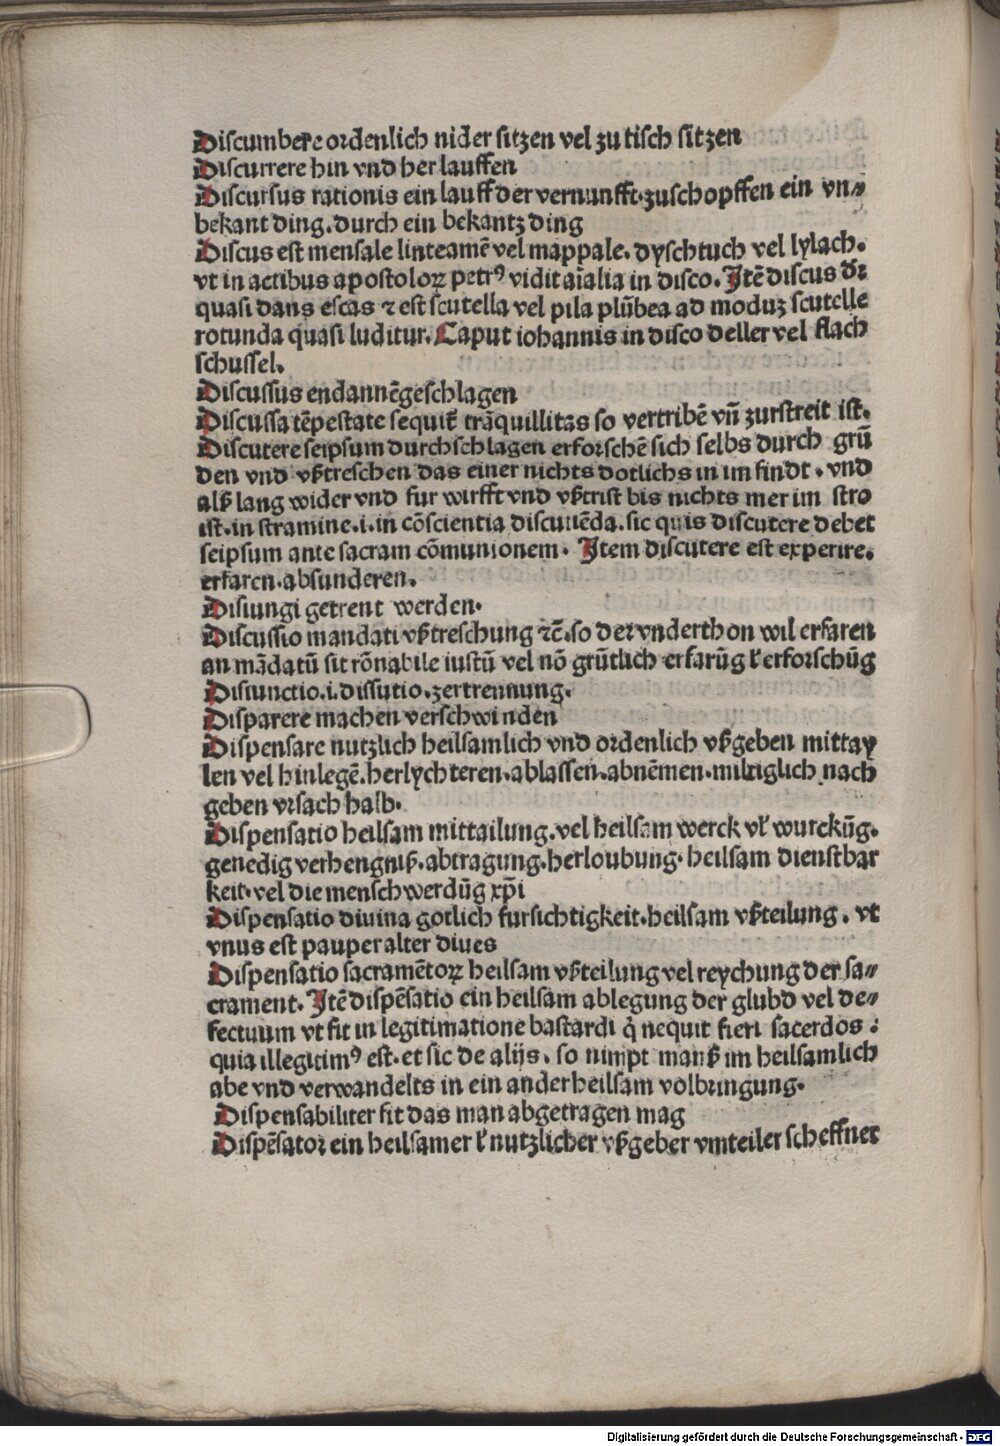 Discumbere ordenlich nider sitzen vel zu tisch sitzen
Discurrere hin vnd her lauffen
Discursus rationis ein lauff der vernunfft·zuschopffen ein vn⸗
bekant ding.durch ein bekantz ding
Discus est mensale linteamē vel mappale. dyschtuch vel lylach.
vt in actibus apostoloꝝ petrꝰ vidit aīalia in disco. Itē discus dr̄
quasi dans escas ⁊ est scutella vel pila plūbea ad moduꝫ scutelle
rotunda quasi luditur. Caput iohannis in disco deller vel flach
schussel.
Discussus endannēgeschlagen
Discussa tēpestate sequit᷑ trāquillitas so vertribē vñ zurstreit ist.
Discutere seipsum durchschlagen erforschē sich selbs durch grū
den vnd vßtreschen das einer nichts dotlichs in im findt . vnd
alß lang wider vnd fur wirfft vnd vßtrist bis nichts mer im stro
ist.in stramine.i.in cōscientia discutiēda.sic quis discutere debet
seipsum ante sacram cōmunionem. Item discutere est experire.
erfaren.absunderen.
Disiungi getrent werden.
Discussio mandati vßtreschung ⁊c̄.so der vnderthon wil erfaren
an mādatū sit rōnabile iustū vel nō grūtlich erfarūg ł erforschūg
Disiunctio.i.dissutio.zertrennung.
Disparere machen verschwinden
Dispensare nutzlich heilsamlich vnd ordenlich vßgeben mittay
len vel hinlegē.herlychteren.ablassen.abnēmen.miltiglich nach
geben vrsach halb.
Dispensatio heilsam mittailung.vel heilsam werck vł wurckūg.
genedig verhengniß.abtragung.herloubung. heilsam dienstbar
keit.vel die menschwerdūg xp̄i
Dispensatio diuina gotlich fursichtigkeit.heilsam vßteilung . vt
vnus est pauper alter diues
Dispensatio sacramētoꝝ heilsam vßteilung vel reychung der sa⸗
crament. Itē dispēsatio ein heilsam ablegung der glubd vel de⸗
fectuum vt fit in legitimatione bastardi q̄ nequit fieri sacerdos :
quia illegitimꝰ est.et sic de alijs. so nimpt manß im heilsamlich
abe vnd verwandelts in ein ander heilsam volbringung.
Dispensabiliter fit das man abgetragen mag
Dispēsator ein heilsamer ł nutzlicher vßgeber vmteiler scheffner
Digitalisierung gefördert durch die Deutsche Forschungsgemeinschaft - DFG